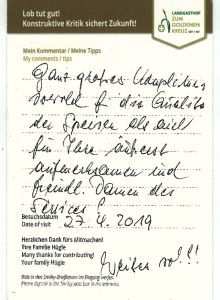 Lob tut gut!
Konstruktive Kritik sichert Zukunft!
LANDGASTHOF
ZUM
GOLDENEN
KREUZ
Mein Kommentar / Meine Tipps
My comments / tips
Ganz großes Kompliment
sowohl f. die Qualität
der Speisen als auch
für Ihre äußerst
aufmerksamen und
freundl. Damen des
Services!
Besuchsdatum
Date of visit
27.4.2019
Herzlichen Dank fürs Mitmachen!
Ihre Familie Hügle
Many thanks for contributing!
Your family Hügle
Weiter so!!!
Bitte in den Smiley-Briefkasten im Eingang werfen.
Please deposit in the Smiley post box in the entrance.